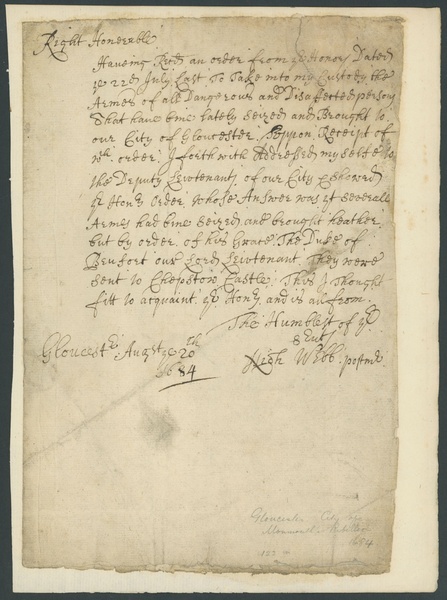 Right Honorable
Haveing Recd an order from yr Honors Dated
ye 22d July Last To Take into my Custody the
Armes of all Dangerous and Disaffected persons
That have bine lately Seized and Brought to
our City of Gloucester; Uppon Receipt of
wch order, I forth with Addressed my selfe to
the Deputy Lievtenants of our City & Showed
yr Honrs Order, whose Answer was yt severall
Armes had bine Seized and brought heather,
but by order of his Grace The Duke of
Beufort our Lord Lievtenant They were
sent to Chepstow Castle; This I Thought
fitt to acquaint yr Honrs and is all from
The Humblest of yr
Servts
Gloucestr Augst ye 20th
1684
High Webb postmr
Gloucester City
Monmouth Rebellion
1684
122